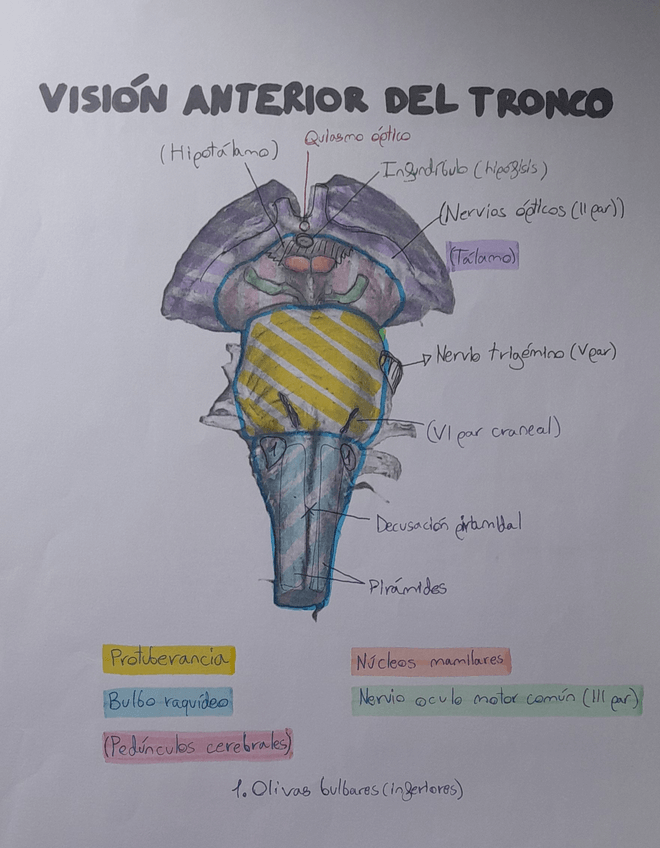 VISIÓN ANTERIOR DEL TRONCO
(Hipotálamo)
Quiasmo óptico
Infundíbulo (hipófisis)
(Nervios ópticos (II par))
(Tálamo)
Nervio trigémino (V par)
(VI par craneal)
1
1
Decusación piramidal
Pirámides
Protuberancia
Núcleos mamilares
Bulbo raquídeo
Nervio oculo motor común (III par)
(Pedúnculos cerebrales)
1. Olivas bulbares (inferiores)